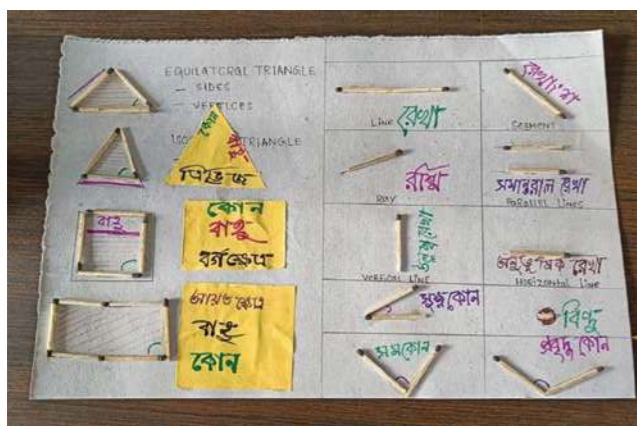 EQUILATERAL TRIANGLE
- SIDES
- VERTICES
TRIANGLE
কোন
বাহু
ত্রিভুজ
বাহু
কোন
বাহু
বর্গক্ষেত্র
আয়তক্ষেত্র
বাহু
কোন
রেখা
LINE
রেখাংশ
SEGMENT
রশ্মি
RAY
সমান্তরাল রেখা
PARALLEL LINES
উলম্ব রেখা
VERTICAL LINE
অনুভূমিক রেখা
HORIZONTAL LINE
সূক্ষ্মকোন
বিন্দু
সমকোন
কোন